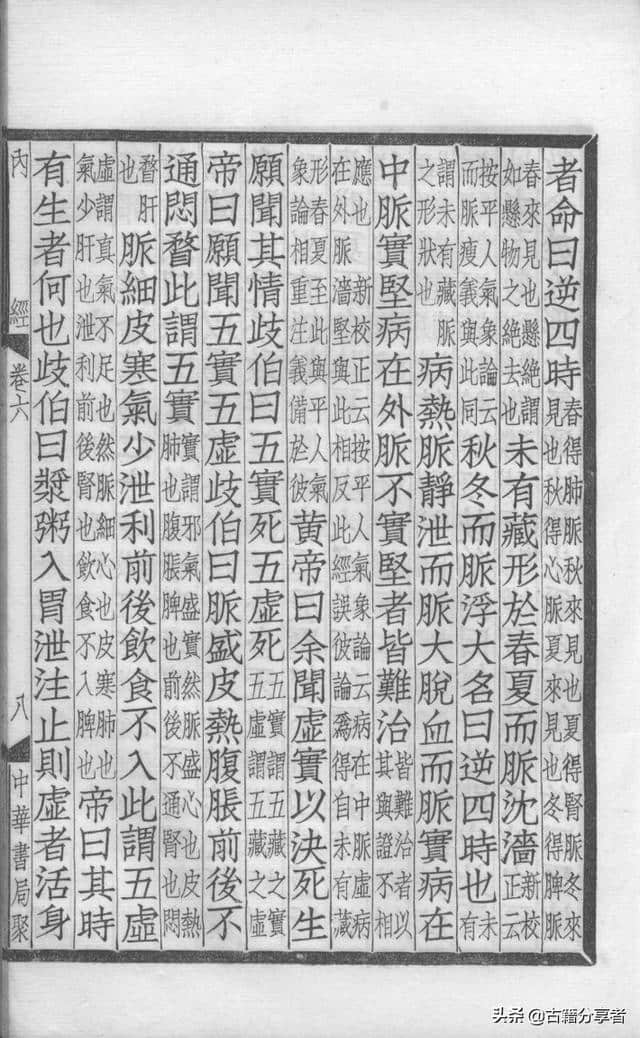 者命曰逆四時春得肺脈秋來見也夏得腎脈冬來見也秋得心脈夏來見也冬得脾脈
春來見也懸絕謂如懸物之絕去也未有藏形於春夏而脈沈濇新校正云
按平人氣象論云而脈瘦義與此同秋冬而脈浮大名曰逆四時也未有
謂未有藏脈之形狀也病熱脈靜泄而脈大脫血而脈實病在
中脈實堅病在外脈不實堅者皆難治皆難治者以其與證不相
應也新校正云按平人氣象論云病在中脈虛病在外脈濇堅與此相反此經誤彼論爲得自未有藏
形春夏至此與平人氣象論相重注義備於彼黃帝曰余聞虛實以決死生
願聞其情歧伯曰五實死五虛死五實謂五藏之實五虛謂五藏之虛
帝曰願聞五實五虛歧伯曰脈盛皮熱腹脹前後不
通悶瞀此謂五實實謂邪氣盛實然脈盛心也皮熱肺也腹脹脾也前後不通腎也悶
瞀肝也脈細皮寒氣少泄利前後飲食不入此謂五虛
虛謂真氣不足也然脈細心也皮寒肺也氣少肝也泄利前後腎也飲食不入脾也帝曰其時
有生者何也歧伯曰漿粥入胃泄注止則虛者活身
內經 卷六 八 中華書局聚
头条 @古籍分享者